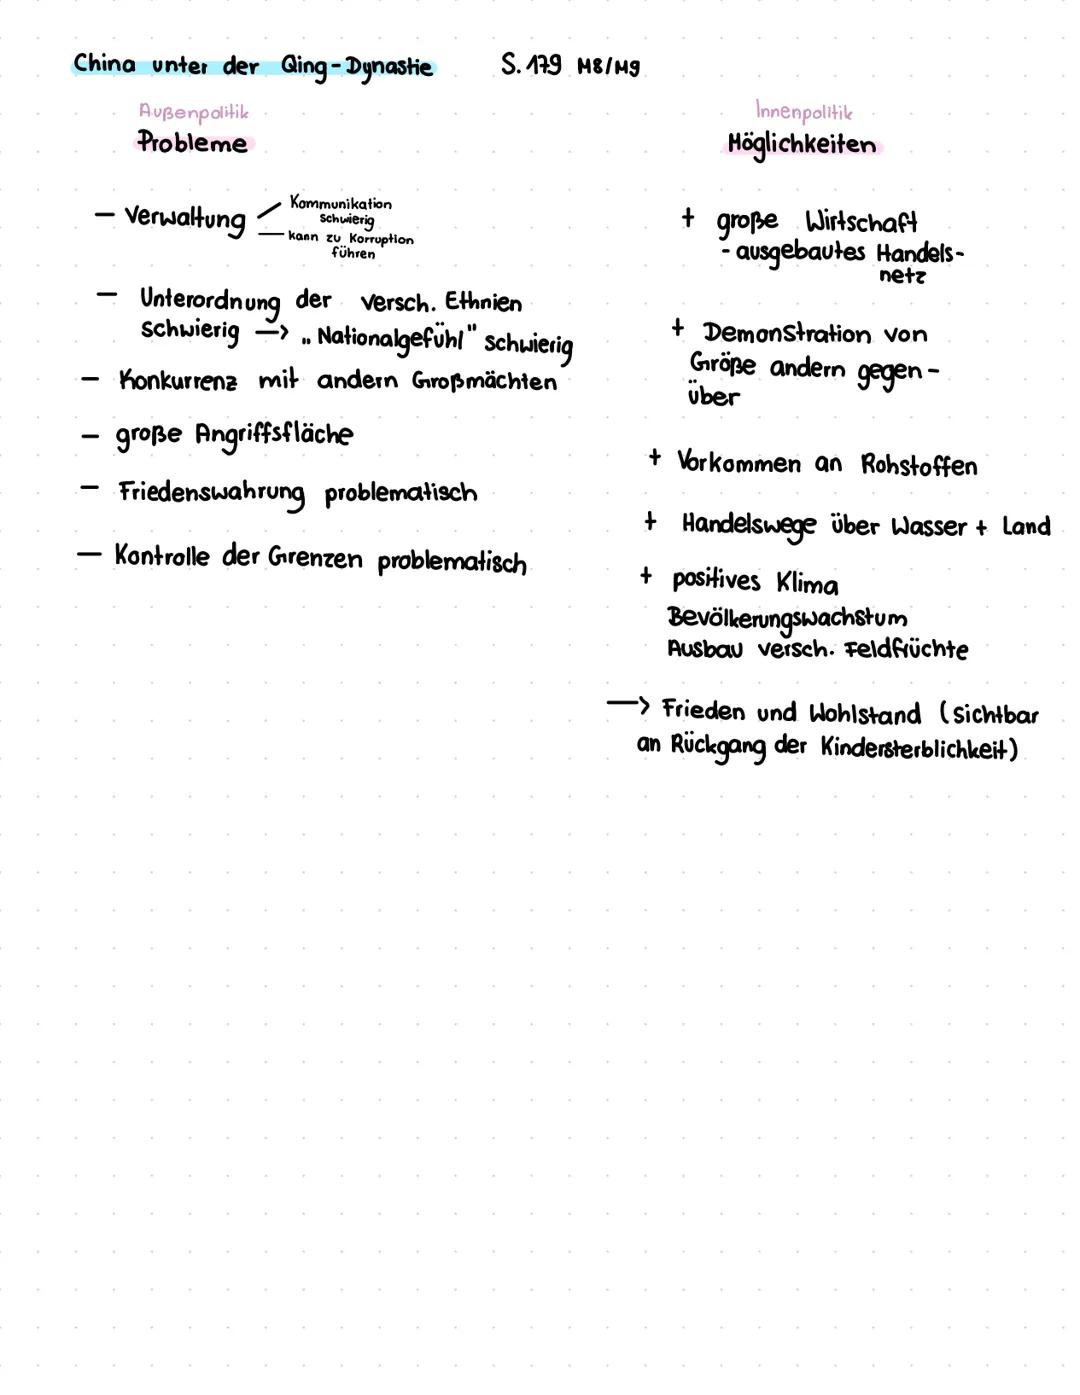 China unter der Qing-Dynastie S. 179 M8/M9
Außenpolitik
Probleme
– Verwaltung
Kommunikation
schwierig
kann zu Korruption
führen
– Unterordnung der versch. Ethnien
schwierig —> „Nationalgefühl" schwierig
– Konkurrenz mit andern Großmächten
– große Angriffsfläche
– Friedenswahrung problematisch
– Kontrolle der Grenzen problematisch
Innenpolitik
Möglichkeiten
+ große Wirtschaft
- ausgebautes Handels-
netz
+ Demonstration von
Größe andern gegen-
über
+ Vorkommen an Rohstoffen
+ Handelswege über Wasser + Land
+ positives Klima
Bevölkerungswachstum
Ausbau versch. Feldfrüchte
—> Frieden und Wohlstand (sichtbar
an Rückgang der Kindersterblichkeit)